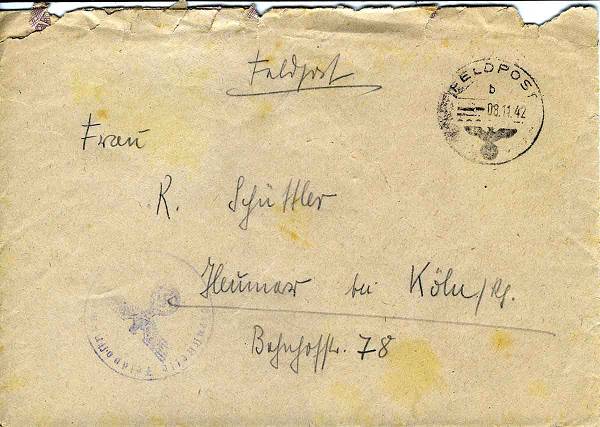 Feldpost
FELDPOST
b
08.11.42
Frau
K. Schüttler
Heumar bei Köln/Rh.
Bahnhofstr. 78